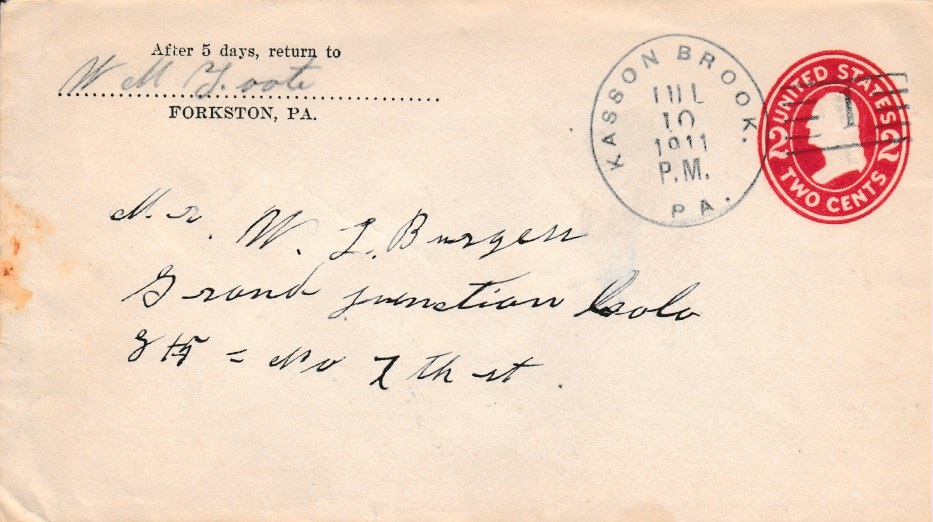 After 5 days, return to
W M Foote
FORKSTON, PA.
KASSON BROOK.
JUL
10
1911
P.M.
PA.
1
UNITED STATES
2 2
TWO CENTS
Mr. W. L. Burgess
Grand junction Colo
No 7 th st